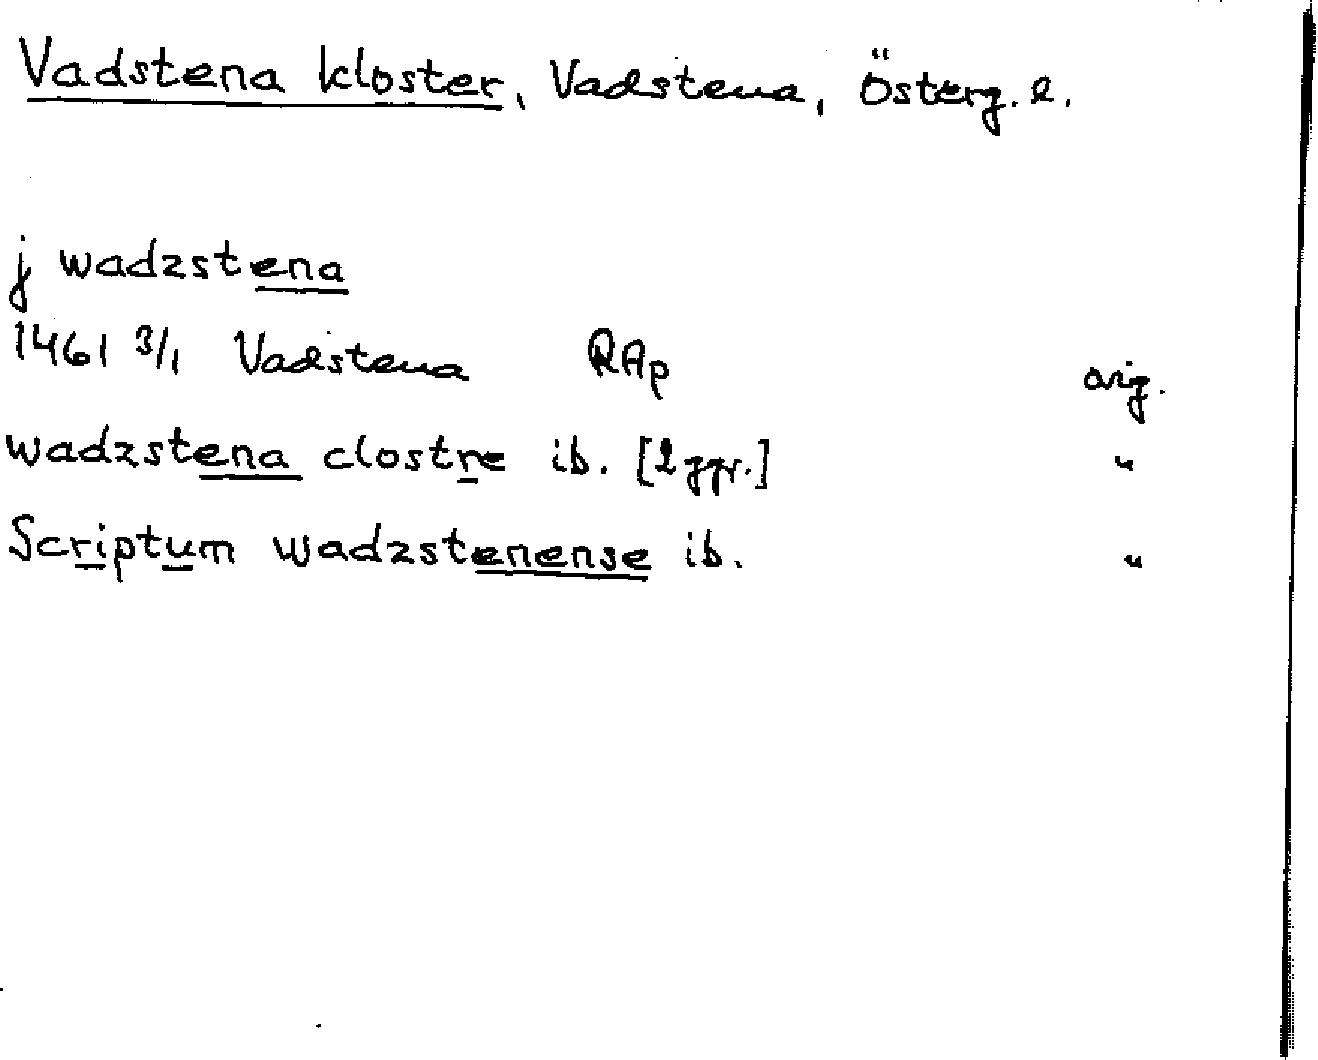 Vadstena kloster, Vadstena, Österg. l.
j wadzstena
1461 3/1 Vadstena RAp orig.
wadzstena clostre ib. [2 ggr.] "
Scriptum wadzstenense ib. "